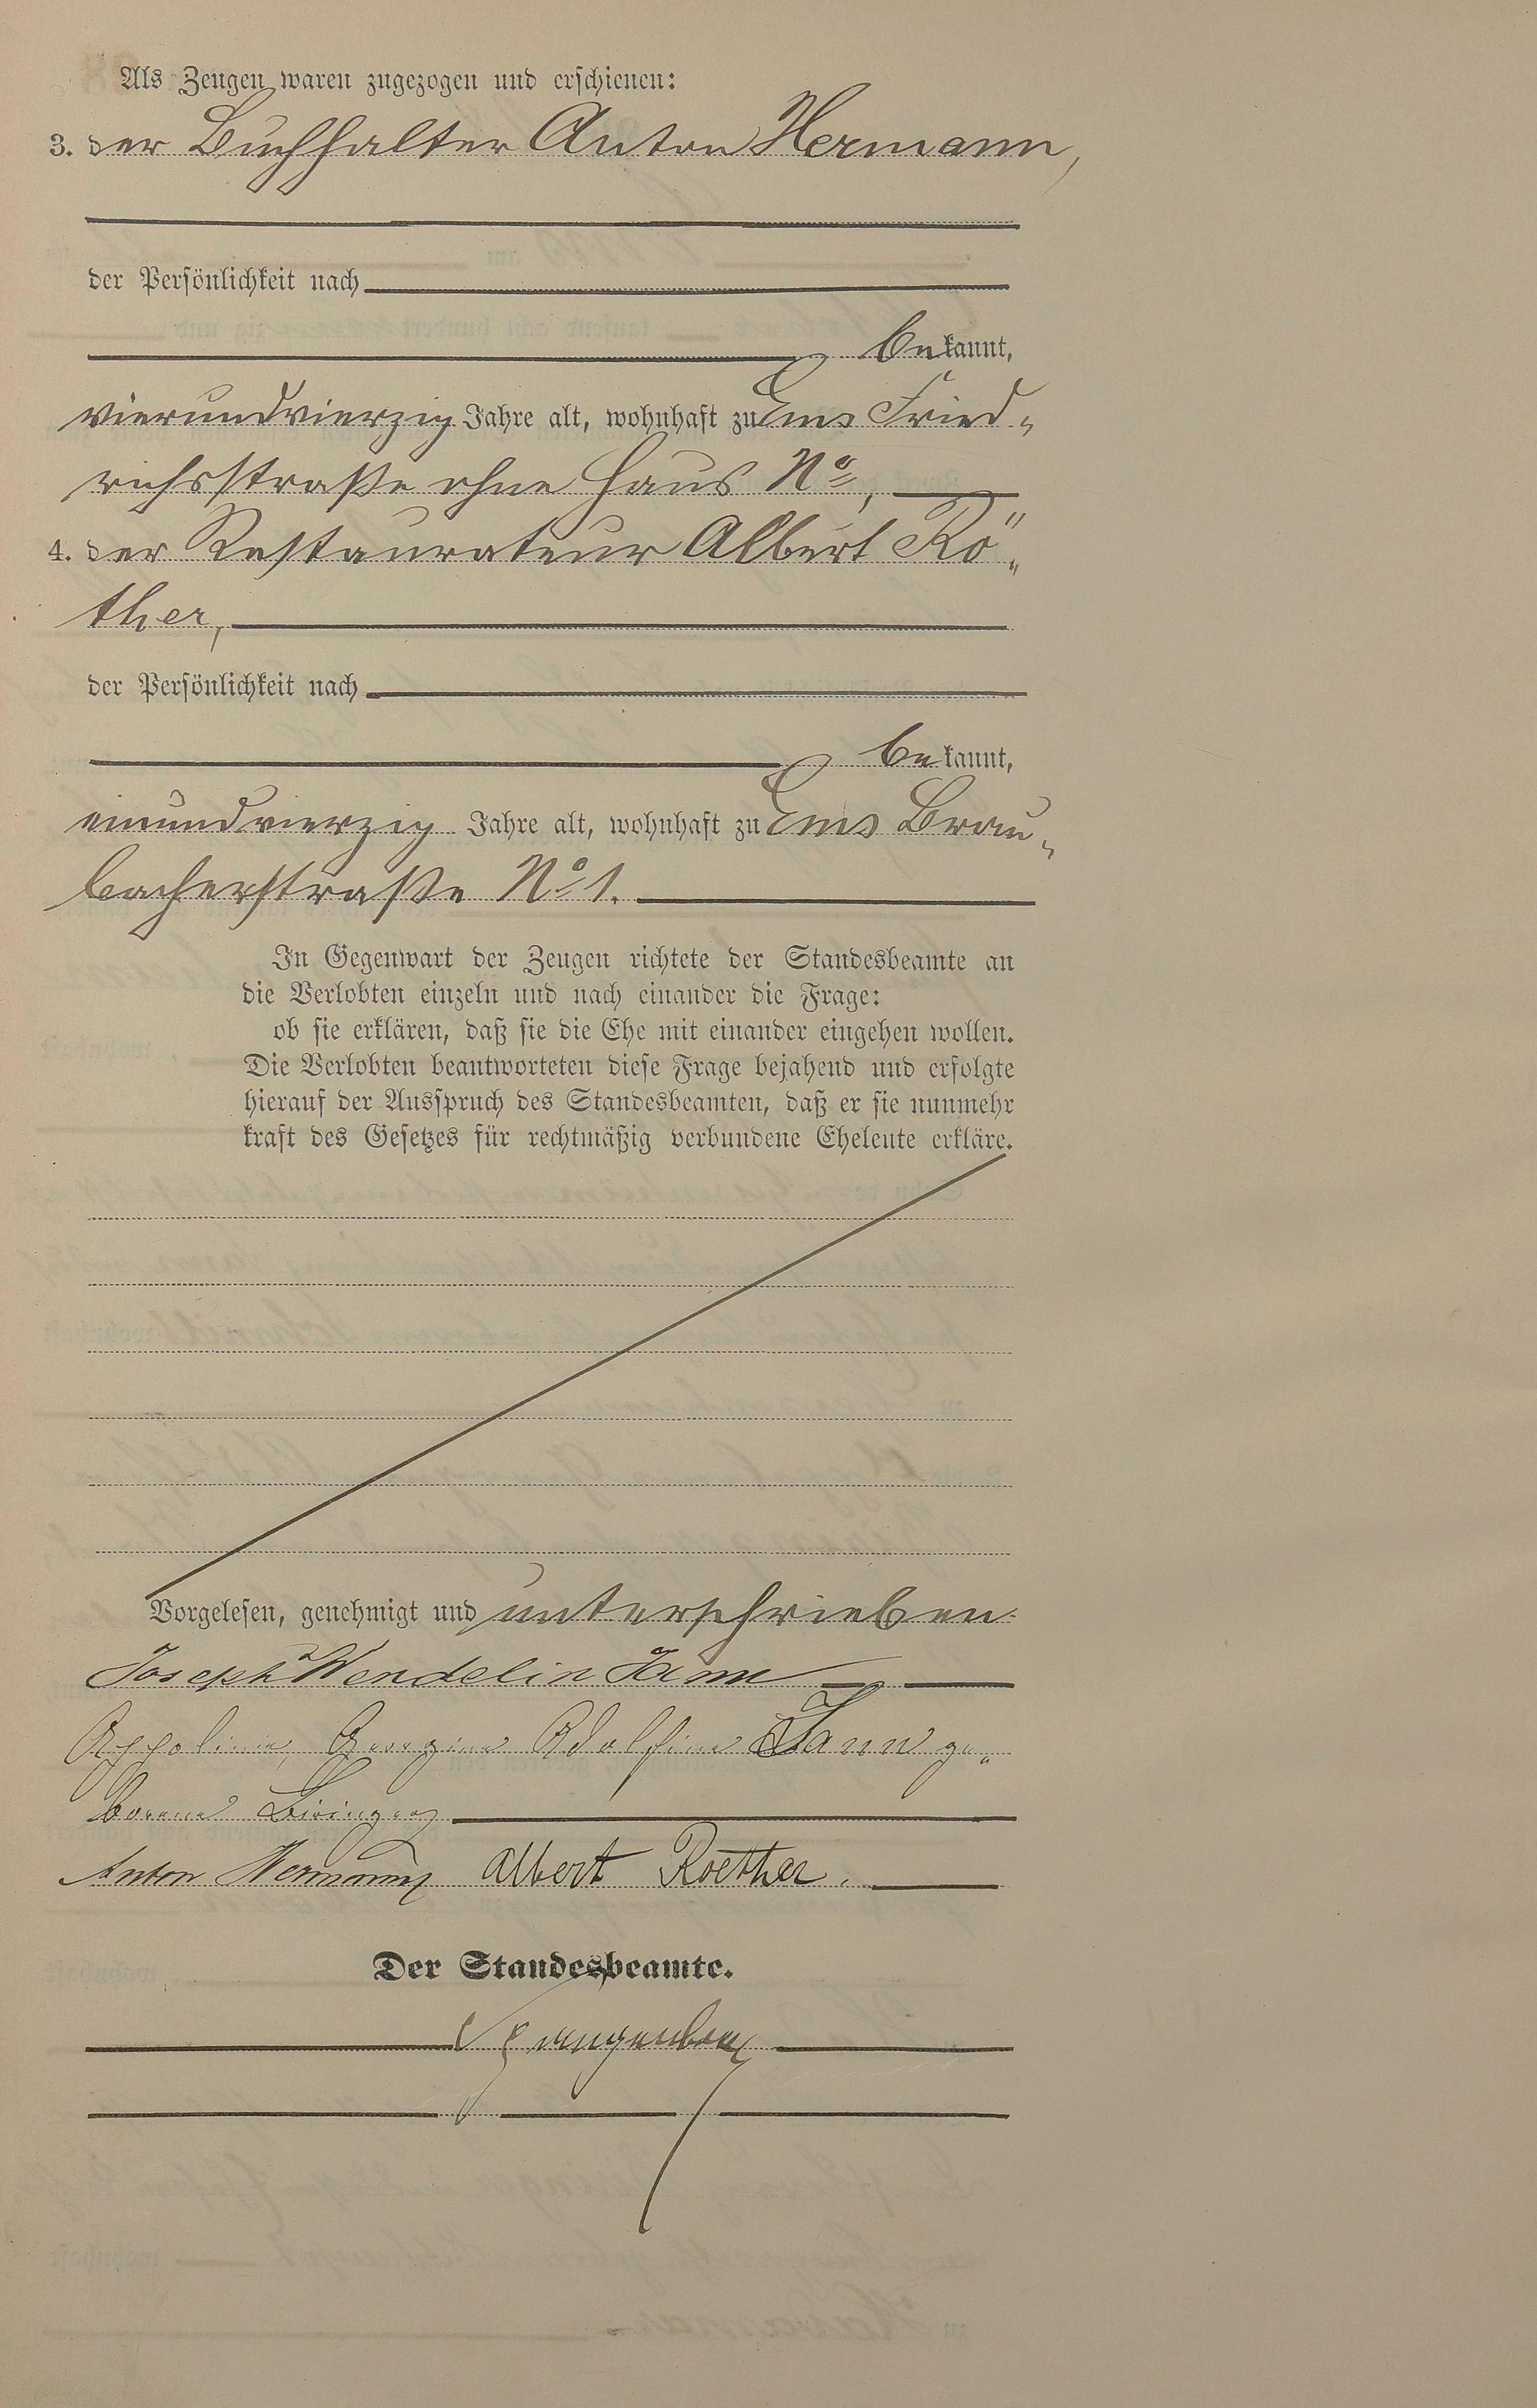 Als Zeugen waren zugezogen und erschienen:
3. der Buchhalter Anton Hermann,
der Persönlichkeit nach
bekannt,
vierundvierzig Jahre alt, wohnhaft zu Ems Fried-
richsstraße ohne Haus No,
4. der Restaurateur Albert Rö-
ther,
der Persönlichkeit nach
bekannt,
einundvierzig Jahre alt, wohnhaft zu Ems Brau-
bacherstraße No 1.
In Gegenwart der Zeugen richtete der Standesbeamte an
die Verlobten einzeln und nach einander die Frage:
ob sie erklären, daß sie die Ehe mit einander eingehen wollen.
Die Verlobten beantworteten diese Frage bejahend und erfolgte
hierauf der Ausspruch des Standesbeamten, daß er sie nunmehr
kraft des Gesetzes für rechtmäßig verbundene Eheleute erkläre.
Vorgelesen, genehmigt und unterschrieben
Joseph Wendelin
Georgine Adolfine ge-
borene
Anton Hermann Albert Roether.
Der Standesbeamte.